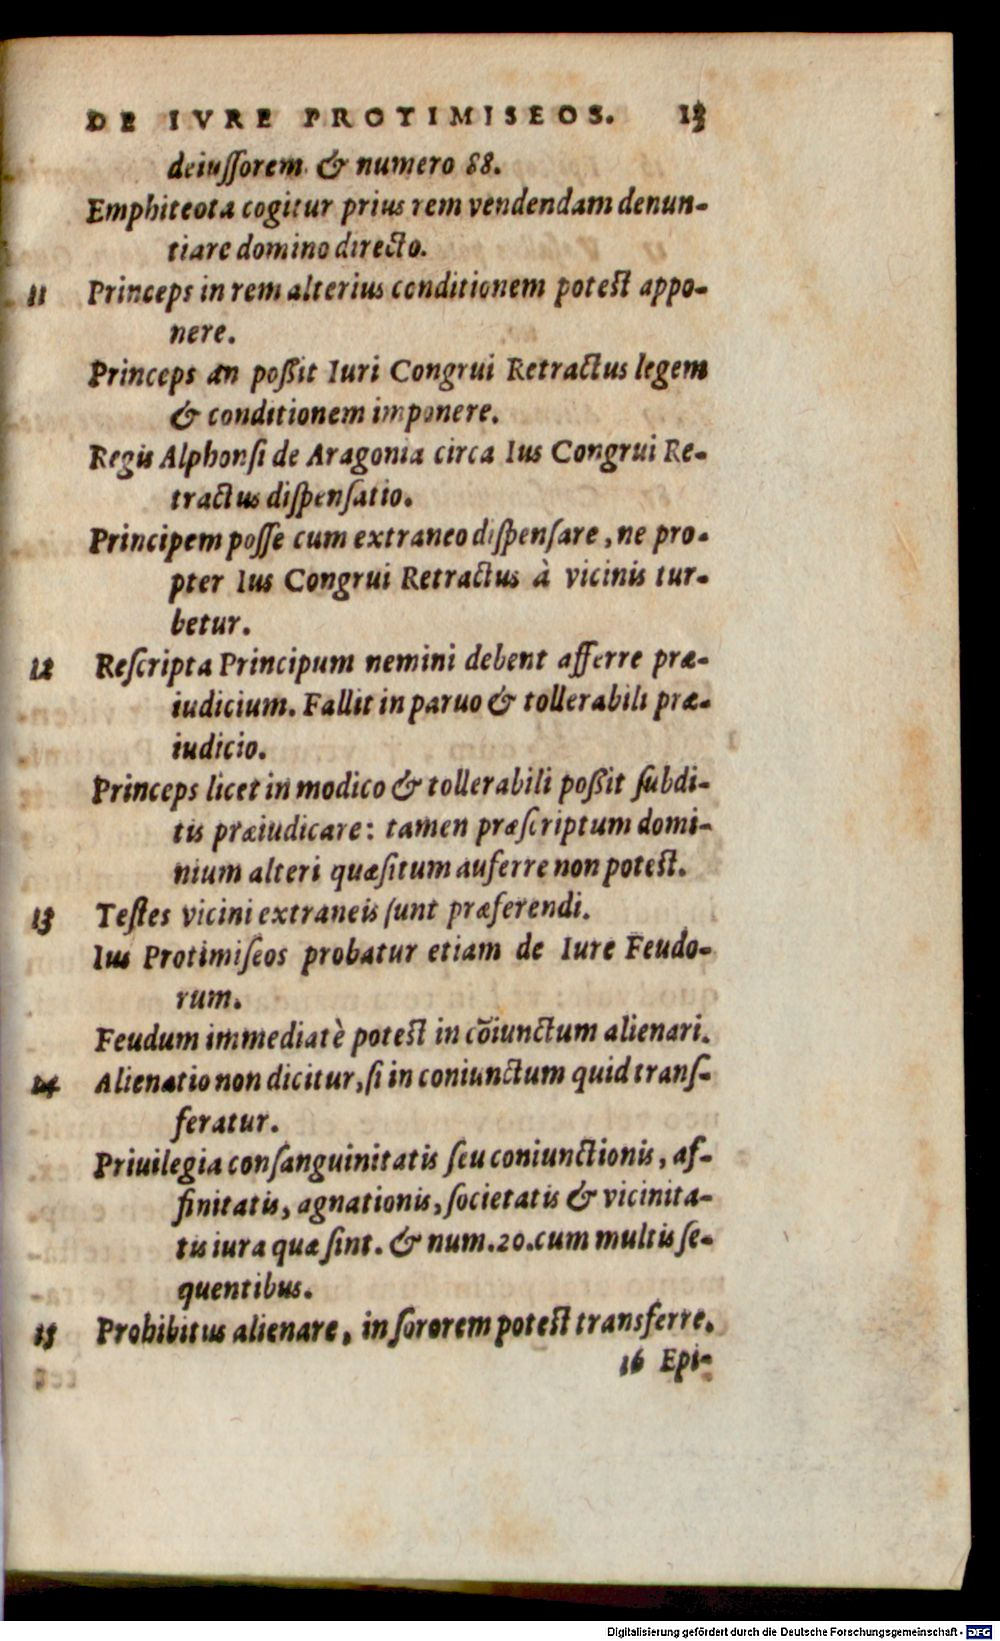 DE IVRE PROTIMISEOS. 13
deiuſſorem & numero 88.
Emphiteota cogitur prius rem vendendam denun-
tiare domino directo.
11 Princeps in rem alterius conditionem poteſt appo-
nere.
Princeps an poßit Iuri Congrui Retractus legem
& conditionem imponere.
Regis Alphonſi de Aragonia circa Ius Congrui Re-
tractus diſpenſatio.
Principem poſſe cum extraneo diſpenſare, ne pro-
pter Ius Congrui Retractus à vicinis tur-
betur.
12 Reſcripta Principum nemini debent afferre præ-
iudicium. Fallit in paruo & tollerabili præ-
iudicio.
Princeps licet in modico & tollerabili poßit ſubdi-
tis præiudicare: tamen præſcriptum domi-
nium alteri quæſitum auferre non poteſt.
13 Teſtes vicini extraneis ſunt præferendi.
Ius Protimiſeos probatur etiam de Iure Feudo-
rum.
Feudum immediatè poteſt in cõiunctum alienari.
14 Alienatio non dicitur, ſi in coniunctum quid tranſ-
feratur.
Priuilegia conſanguinitatis ſeu coniunctionis, af-
finitatis, agnationis, ſocietatis & vicinita-
tis iura quæ ſint. & num. 20. cum multis ſe-
quentibus.
15 Prohibitus alienare, in ſororem poteſt transferre.
16 Epi-
Digitalisierung gefördert durch die Deutsche Forschungsgemeinschaft - DFG